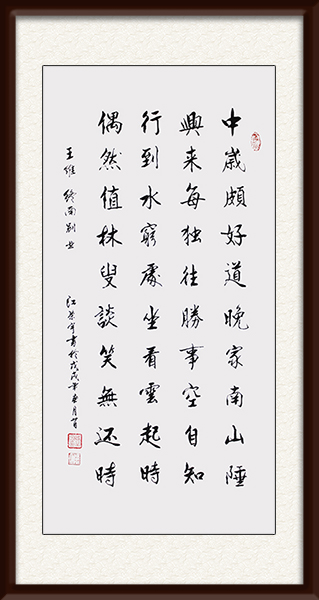 中歲頗好道晚家南山陲
興来每独往勝事空自知
行到水窮處坐看雲起時
偶然值林叟談笑無还時
王維 終南别业
書於戊戌年